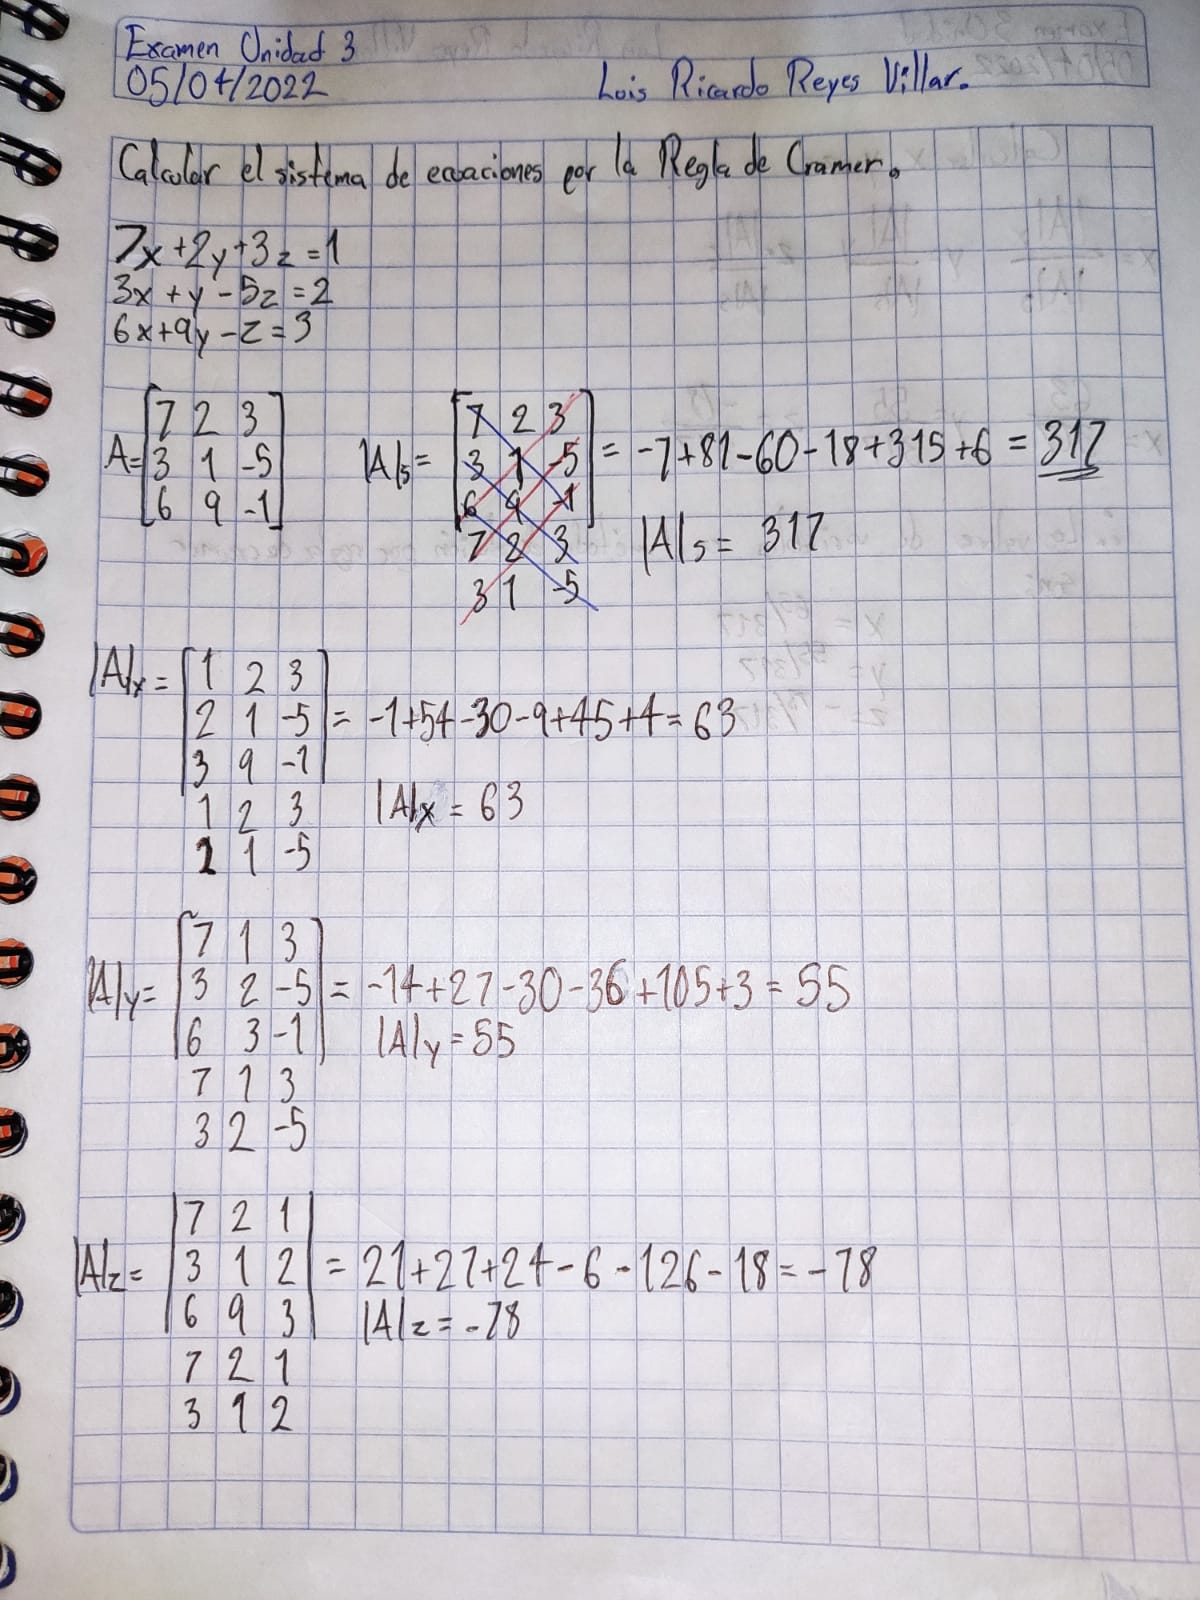 Examen Unidad 3
05/04/2022
Luis Ricardo Reyes Villar.
Calcular el sistema de ecuaciones por la Regla de Cramer.
7x+2y+3z=1
3x+y-5z=2
6x+9y-z=3
A=[7 2 3
3 1 -5
6 9 -1]
|A|s=[7 2 3
3 1 -5
6 9 -1]
7 2 3
3 1 -5
= -7+81-60-18+315+6 = 317
|A|s = 317
|A|x=[1 2 3
2 1 -5
3 9 -1]
1 2 3
2 1 -5
= -1+54-30-9+45+4=63
|A|x = 63
|A|y=[7 1 3
3 2 -5
6 3 -1]
7 1 3
3 2 -5
= -14+27-30-36+105+3=55
|A|y=55
|A|z=|7 2 1
3 1 2
6 9 3|
7 2 1
3 1 2
= 21+27+24-6-126-18=-78
|A|z=-78